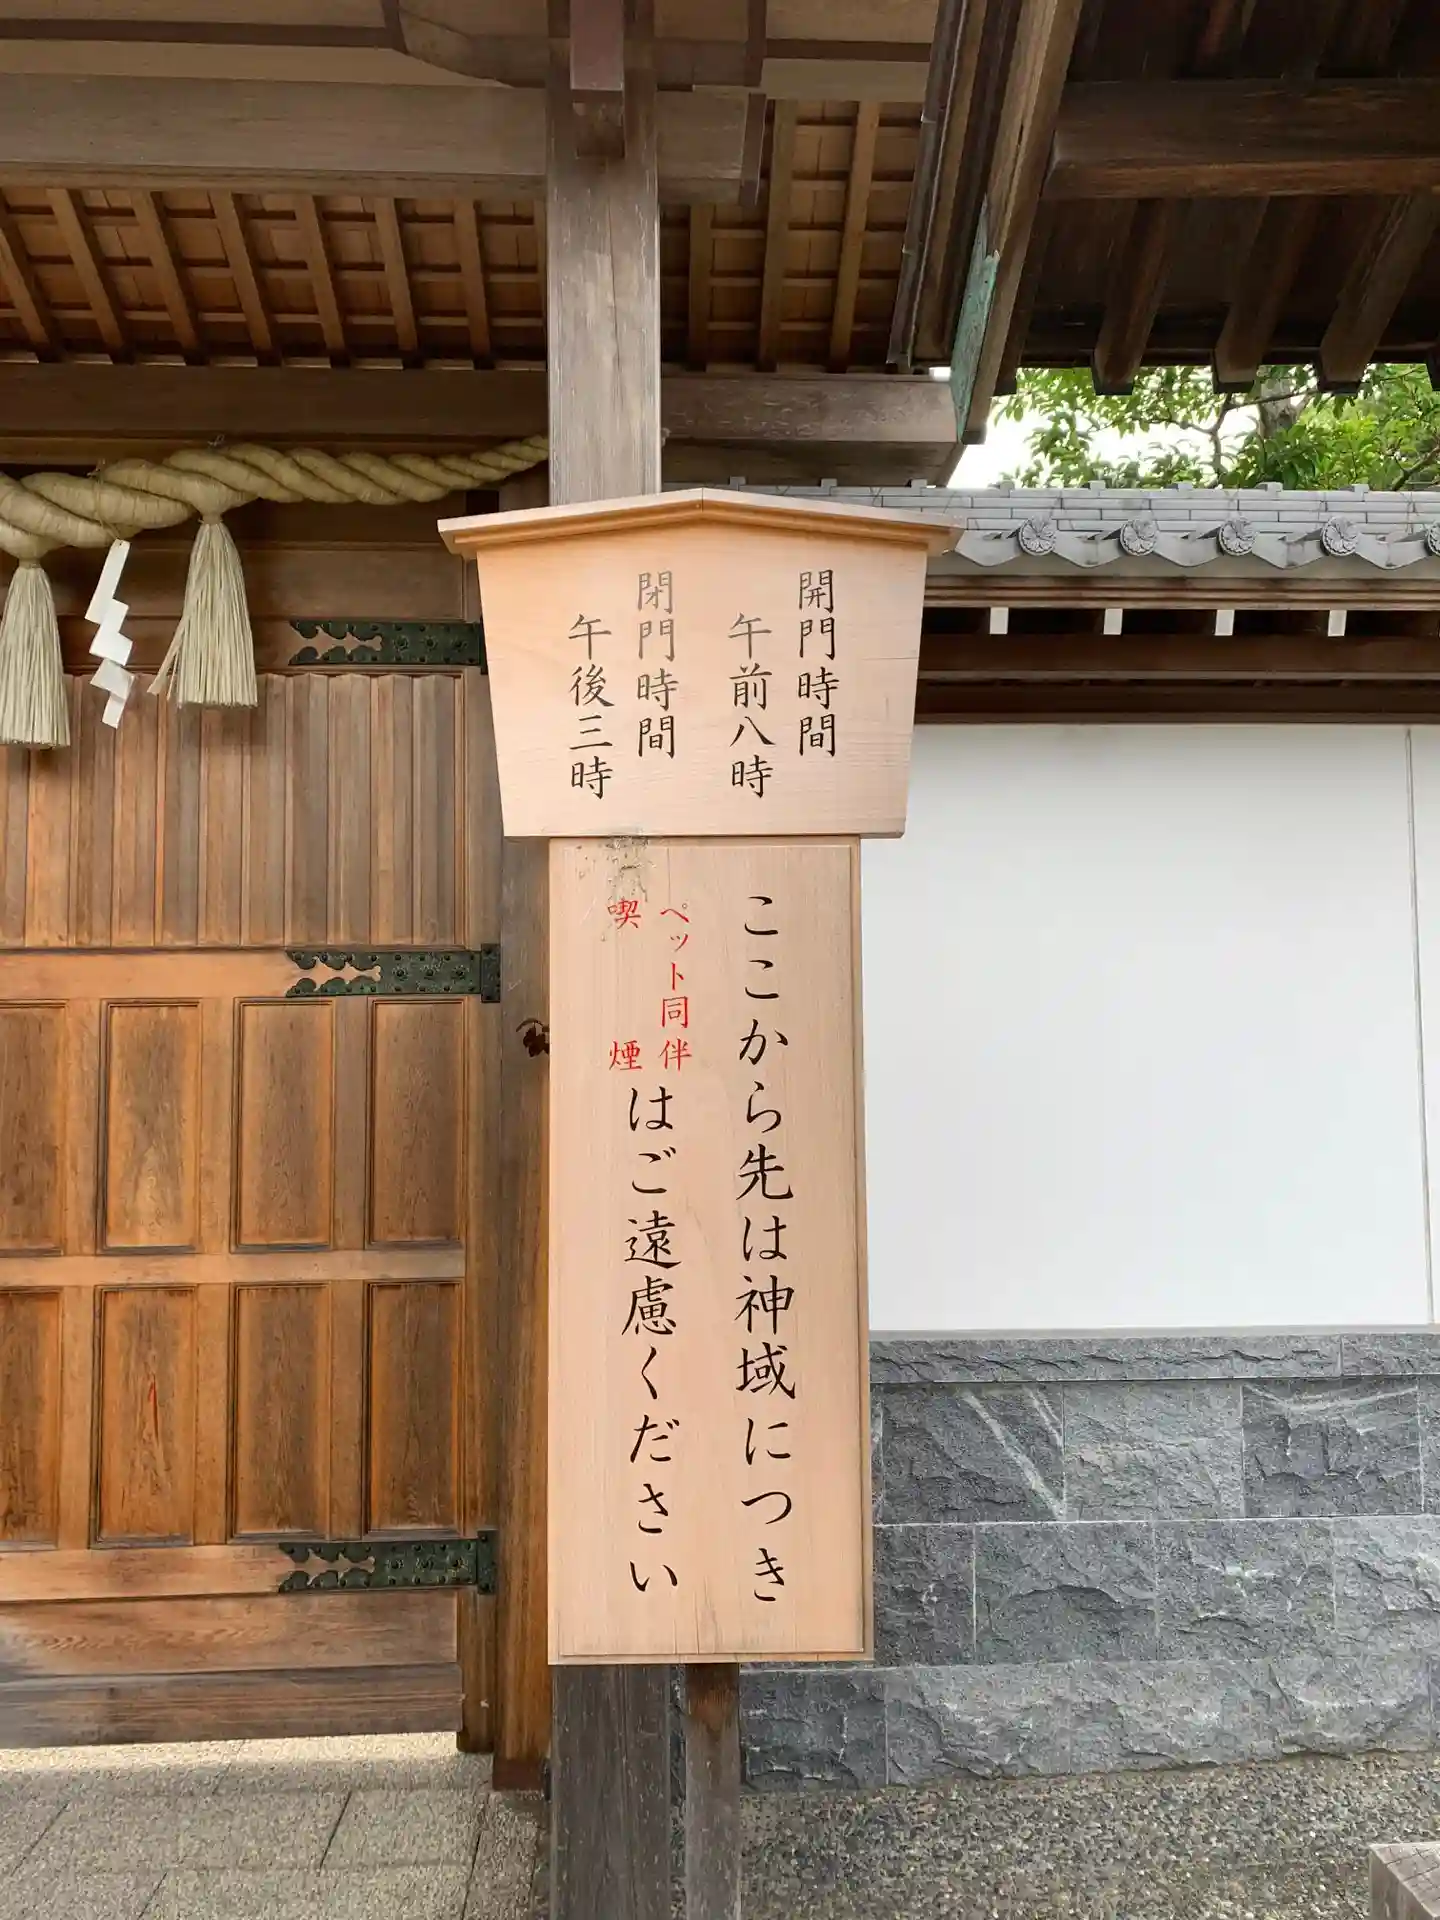 開門時間
午前八時
閉門時間
午後三時
ここから先は神域につき
ペット同伴
喫煙
はご遠慮ください